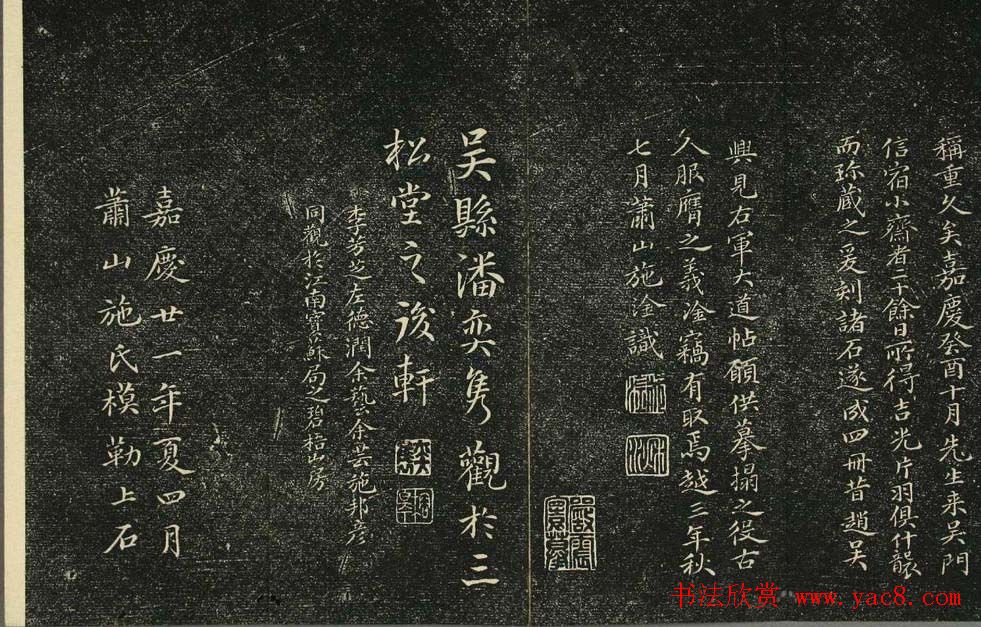 稱重久矣嘉慶癸酉十月先生来吳門
信宿小齋者二十餘日所得吉光片羽俱什襲
而珎蔵之爰刻諸石遂成四冊昔趙吳
興見右軍大道帖願供摹搨之役古
人服膺之義淦竊有取焉越三年秋
七月蕭山施淦識
吴縣潘奕雋觀於三
松堂之後軒
李芳芝左德潤余藝余芸施邦彦
同觀於江南寶蘇局之碧梧山房
嘉慶廿一年夏四月
蕭山施氏模勒上石
书法欣赏 www.yac8.com